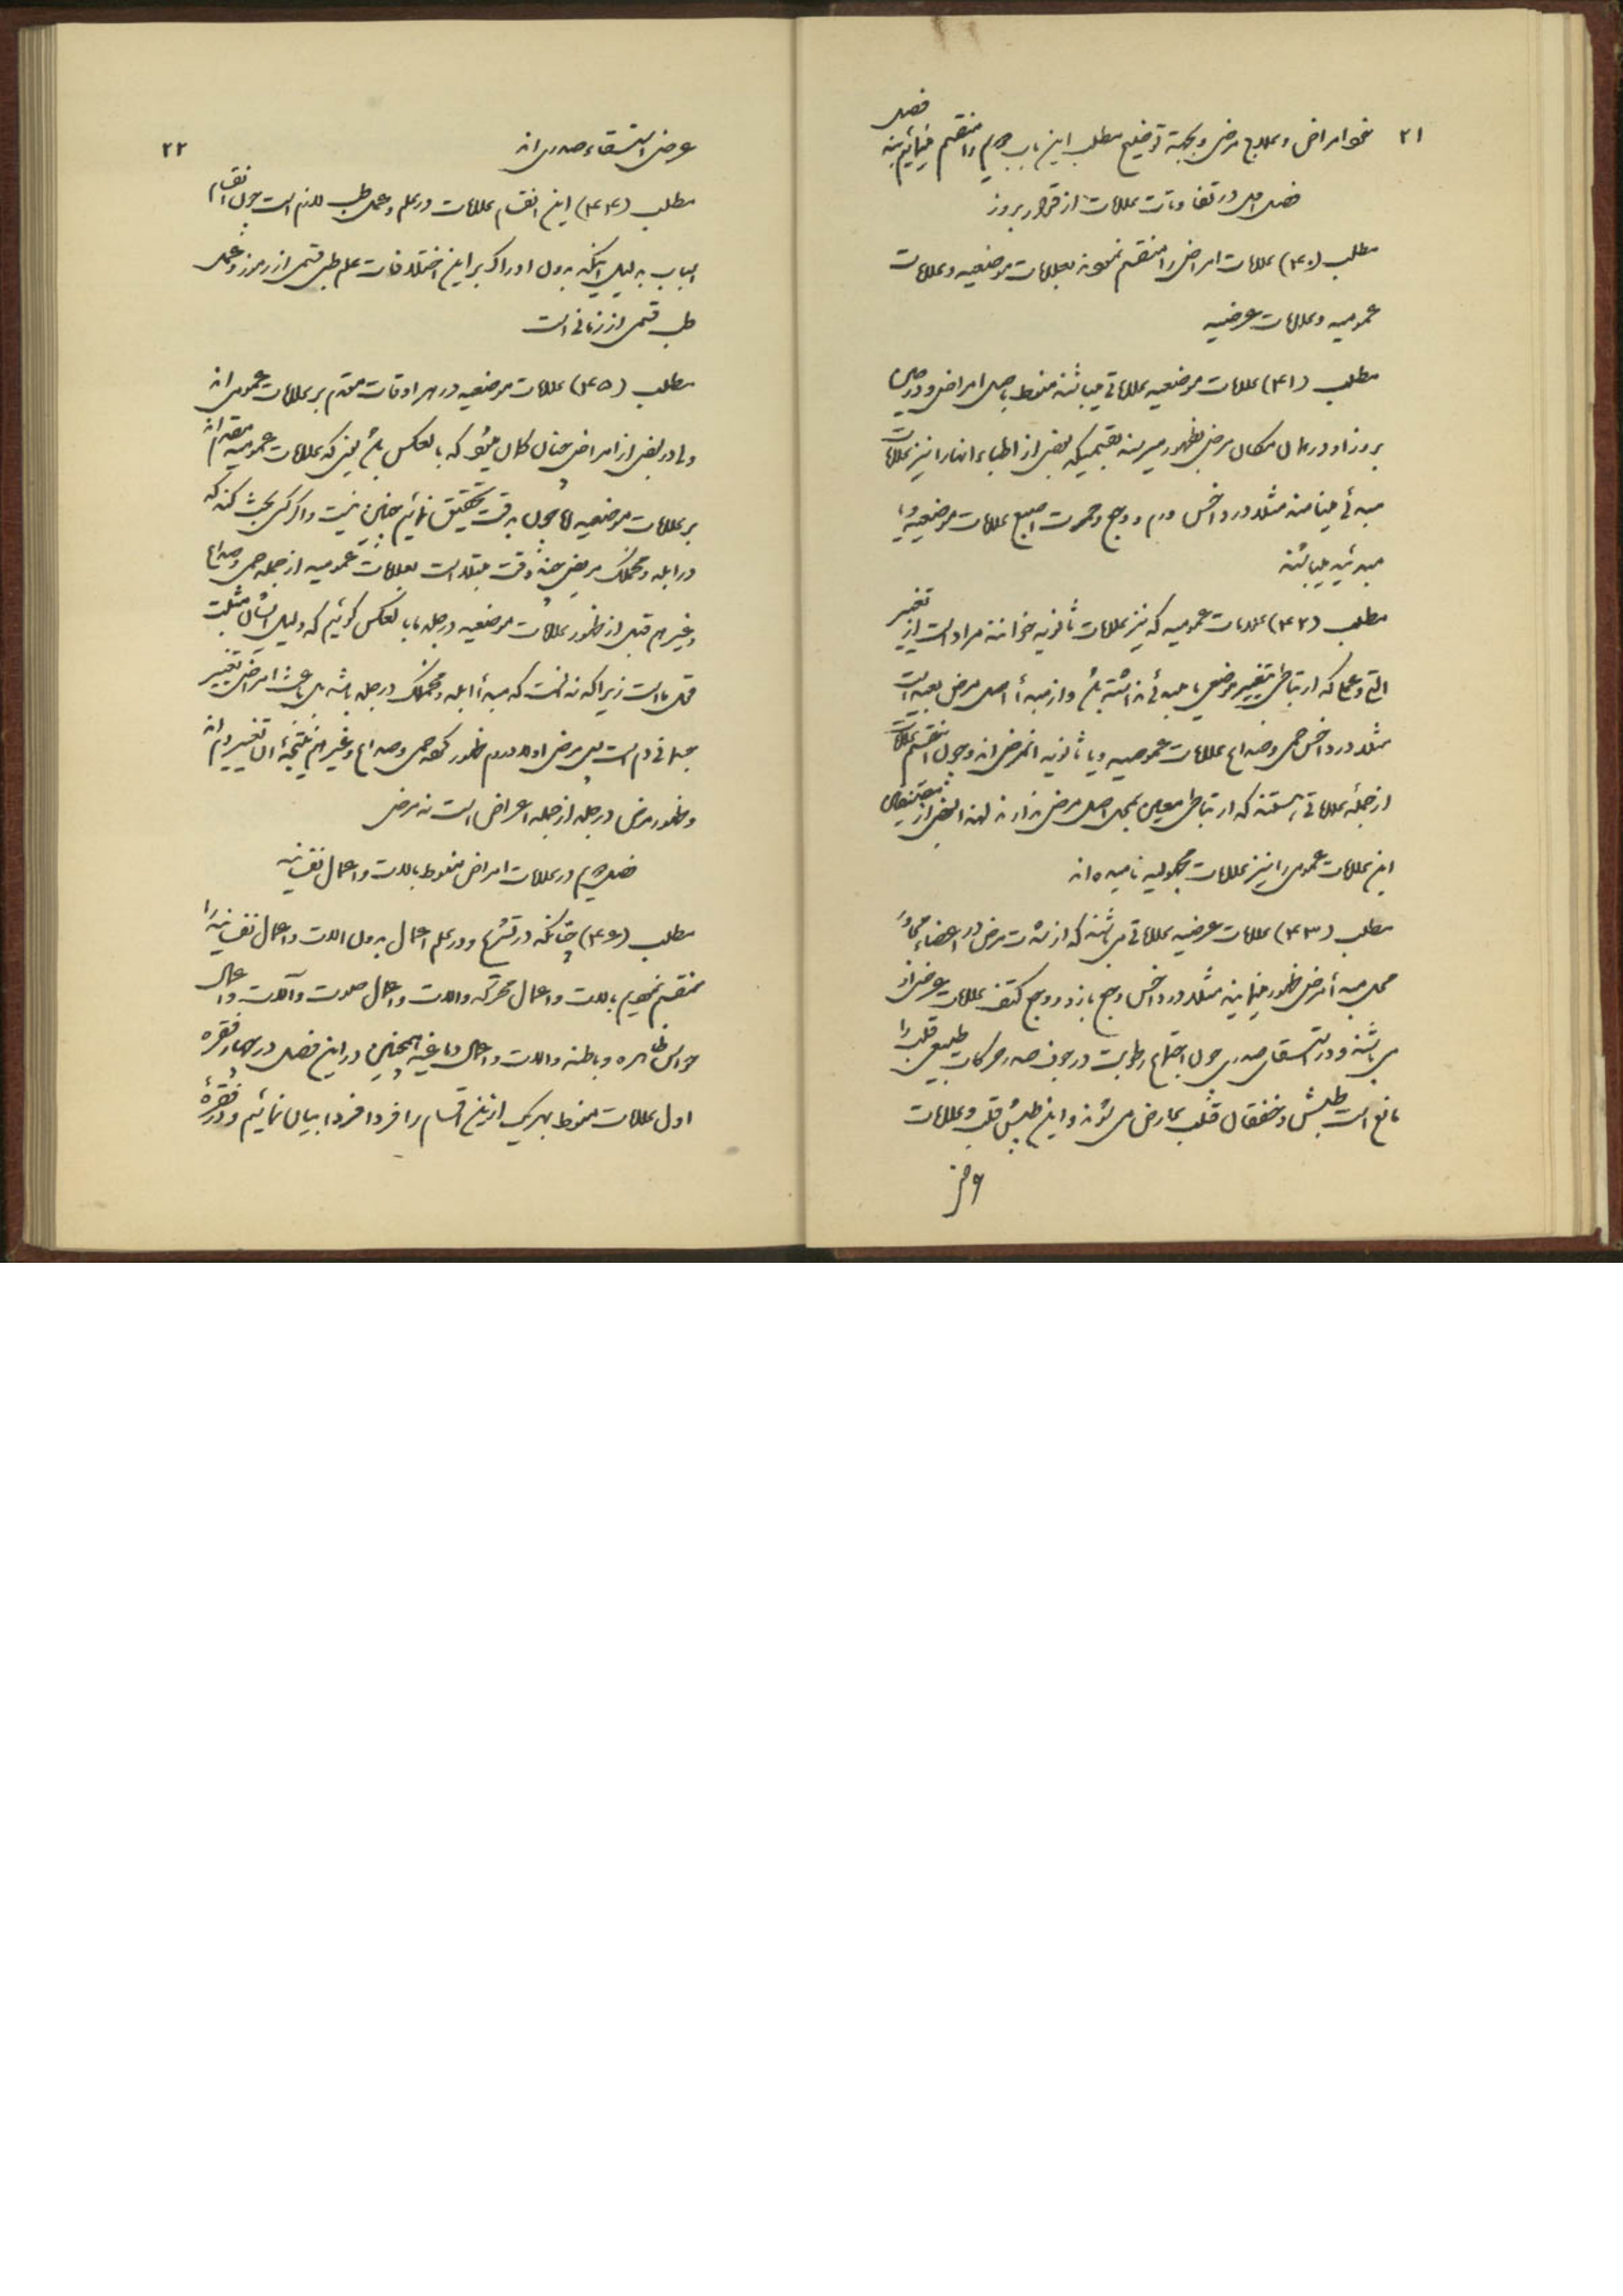 ۲۱
نحو امراض و علاج مرض و بجهة توضیح مطلب این باب دویم را منقسم مینمائیم به فصل
فصل اول در تفاوتات علامات از قرار بروز
مطلب (۴۰) علامات امراض را منقسم نموده بعلامات موضعیه و علامات
عمومیه و علامات عرضیه
مطلب (۴۱) علامات موضعیه علاماتی میباشند منوط باصل امراض و در حین
بروز او در همان مکان مرض بظهور میرسند بقسمیکه بعضی از اطباء انها را نیز علامات
مبدئی مینامند مثلا در داخس ورم و وجع و حمرت اصبع علامات موضعیه و یا
مبدئیه میباشند
مطلب (۴۲) علامات عمومیه که نیز علامات ثانویه خوانند مراد است از تغییر
الات و عملها که ارتباطی بتغییر موضعی یا مبدئی نداشته باشد و از مبدأ اصل مرض بعید است
مثلا در داخس حمی و صداع علامات عمومیه و یا ثانویه انمرض اند و چون انقسم علامات
از جمله علاماتی هستند که ارتباط معین بمحل اصل مرض ندارند لهذا بعضی از مصنفین
این علامات عمومی را نیز علامات مجهولیه نامیده اند
مطلب (۴۳) علامات عرضیه علاماتی میباشند که از شدت مرض در اعضاء مجاور
محل مبدأ مرض ظهور مینمایند مثلا در داخس وجع بازو و وجع کتف علامات عرضی او
می باشند و در استسقای صدری چون اجتماع رطوبت در جوف صدر حرکات طبیعی قلب را
مانع است طپش و خفقان قلب عارض می شوند و این طپش قلب و علامات
۲۲
عرض استسقاء صدری اند
مطلب (۴۴) این انقسام علامات در علم و عمل طب لازم است چون انقسام
اسباب بدلیل اینکه بدون ادراک بر این اختلافات علم طبی قسمی از رمز و عمل
طب قسمی از زمانی است
مطلب (۴۵) علامات موضعیه در هر اوقات مقدم بر علامات عمومی اند
ولی در بعضی از امراض چنان گمان میشود که بالعکس باشد یعنی که علامات عمومیه مقدم اند
بر علامات موضعیه اما چون بدقت تحقیق نمائیم چنین نیست و اگر کسی بحث کند که
در ابله و مخملک مریض چند وقت مبتلا است بعلامات عمومیه از جمله حمی و صداع
و غیرهم قبل از ظهور علامات موضعیه در جلد ما بالعکس گوئیم که دلیل ایشان مثبت
قول ما است زیرا که ندانست که مبدأ ابله و مخملک در جلد باشد بل باعث امراض تغییر
جسمانی دم است پس مرض اولا در دم ظهور کند حمی و صداع و غیرهم نتیجهٔ ان تغییر دم اند
و ظهور مرض در جلد از جمله اعراض است نه مرض
فصل دویم در علامات امراض منوط بالات و اعمال نفسانیه
مطلب (۴۶) چنانکه در تشریح و در علم اعمال بدون الات و اعمال نفسانیه را
منقسم نمودیم بالات و اعمال محرکه و الات و اعمال صوت و آلات و اعمال
حواس ظاهره و باطنه و الات و اعمال دماغیه همچنین در این فصل در چهار فقره
اول علامات منوط بهریک از این اقسام را فردا فردا بیان نمائیم و در فقرهٔ